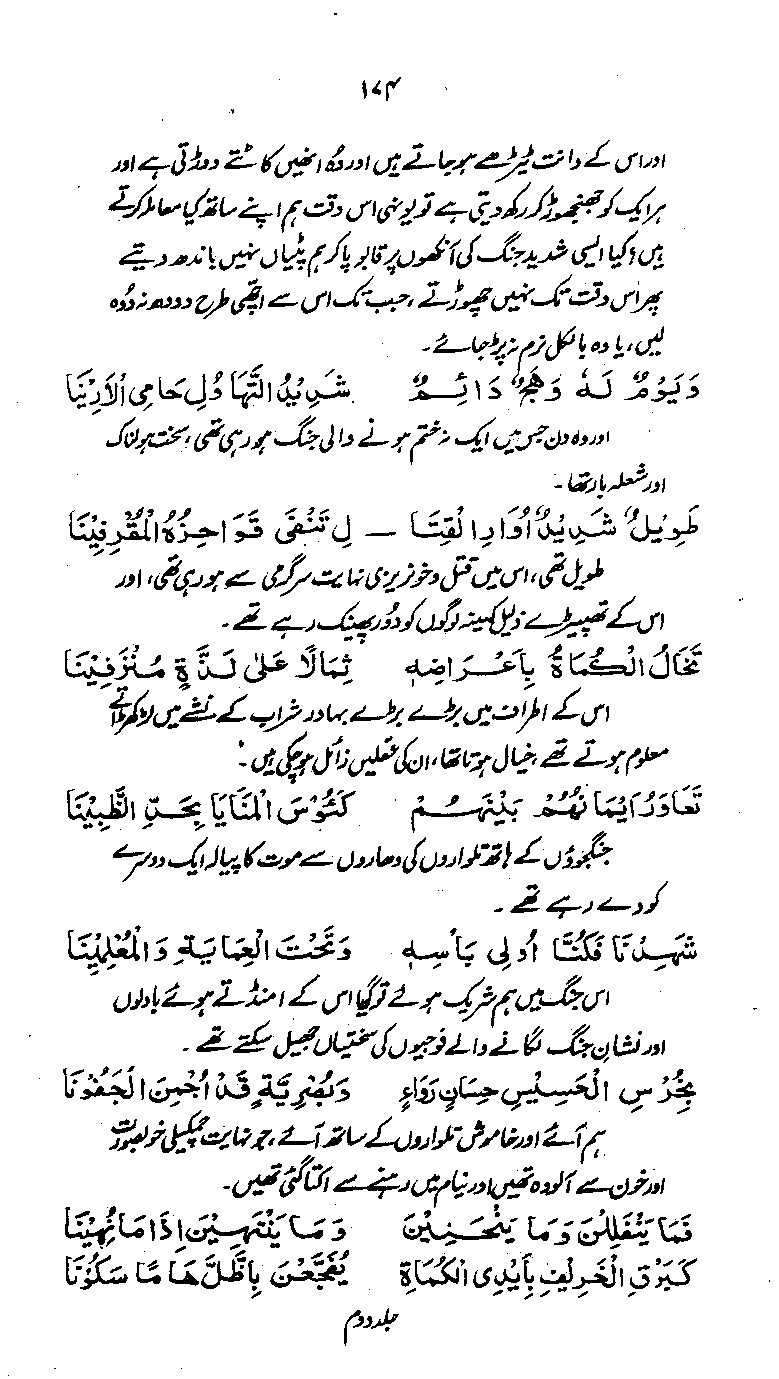 ۱۷۴
اور اس کے دانت ٹیڑھے ہو جاتے ہیں اور وُہ انھیں کاٹنے دوڑتی ہے اور
ہر ایک کو جھنجھوڑ کر رکھ دیتی ہے تو یونہی اس وقت ہم اپنے ساتھ کیا معاملہ کرتے
ہیں؟ کیا ایسی شدید جنگ کی آنکھوں پر قابو پا کر ہم پٹیاں نہیں باندھ دیتے
پھر اُس وقت تک نہیں چھوڑتے، جب تک اس سے اچھی طرح دودھ نہ دُوہ
لیں، یا وہ بالکل نرم نہ پڑ جائے۔
وَيَوْمٌ لَهٗ وَهَجٌ دَائِمٌ شَدِيدُ التَّهَاوُلِ حَامِي الْاَرْيْنَا
اور وہ دن جس میں ایک نہ ختم ہونے والی جنگ ہو رہی تھی، سخت ہولناک
اور شعلہ بار تھا۔
طَوِيْلٌ شَدِيْدٌ اُوَارِ الْقِتَا — لِ تَنْفَى قَوَاحِزُهُ الْمُقْرِفِيْنَا
طویل تھی، اس میں قتل و خونریزی نہایت سرگرمی سے ہو رہی تھی، اور
اس کے تھپیڑے ذلیل کمینہ لوگوں کو دُور پھینک رہے تھے۔
تَخَالُ الْكُمَاةَ بِاَعْرَاضِهٖ ثِمَالًا عَلٰى لَذَّةٍ مُنْزَفِيْنَا
اس کے اطراف میں بڑے بڑے بہادر شراب کے نشے میں لڑکھڑاتے
معلوم ہوتے تھے، خیال ہوتا تھا، ان کی عقلیں زائل ہو چکی ہیں۔
تَعَاوَرُ اَيْمَانُهُمْ بَيْنَهُمْ كَئُوْسَ الْمَنَايَا بِحَدِّ الظُّبِيْنَا
جنگجوؤں کے ہاتھ تلواروں کی دھاروں سے موت کا پیالہ ایک دوسرے
کو دے رہے تھے۔
شَهِدْنَا فَكُنَّا اُولِى بَأْسِهٖ وَتَحْتَ الْعِمَايَةِ وَالْمُعْلِمِيْنَا
اس جنگ میں ہم شریک ہوئے تو گیا اس کے امنڈتے ہوئے بادلوں
اور نشانِ جنگ لگانے والے فوجیوں کی سختیاں جھیل سکتے تھے۔
بِخُرْسِ الْحَسِيْسِ حِسَانٍ رِوَاءٍ وَبُصْرِيَّةٍ قَدْ اُجِمْنَ الْجَفُوْنَا
ہم آئے اور خاموش تلواروں کے ساتھ آئے، جو نہایت چمکیلی خوبصورت
اور خون سے آلودہ تھیں اور نیام میں رہنے سے اکتا گئی تھیں۔
فَمَا يَنْفَلِلْنَ وَمَا يَنْحَنِيْنَ وَمَا يَنْتَهِيْنَ اِذَا مَا نُهِيْنَا
كَبَرْقِ الْخَرِيْفِ بِأَيْدِى الْكُمَاةِ يُفَجِّعْنَ بِالظِّلِّ هَامًا سَكُوْنَا
جلد دوم